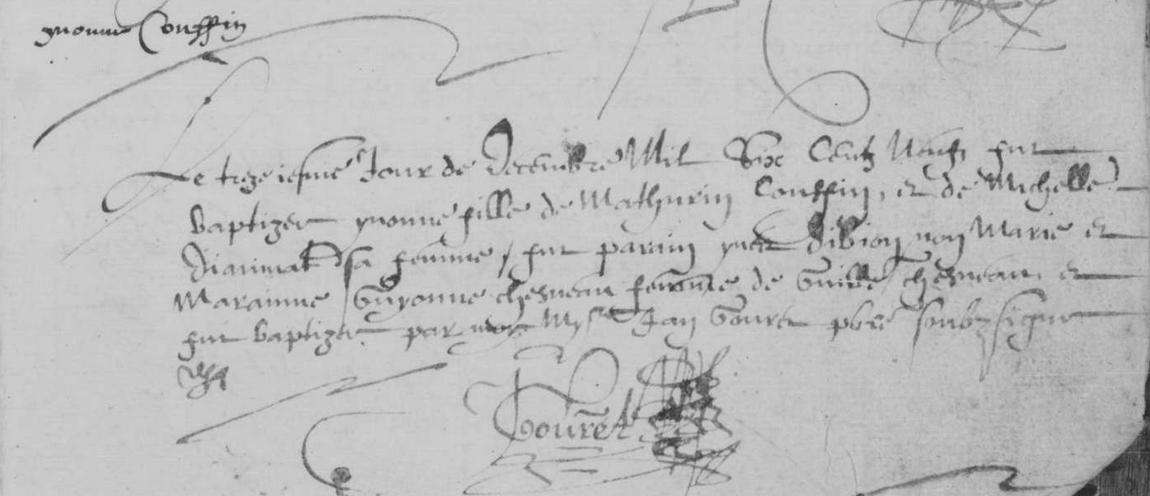 yvonne Couffin
Le trezeiesme Jour de decembre Mil Six Centz Neuf fut
baptizee yvonne fille de Mathurin Couffin, et de Michelle
sa femme, fut parain yves non Marie et
Marainne Guyonne chesneau femme de Guille chesneau et
fut baptizee par moy Jan Gouret pbre soubzsigne
Gouret